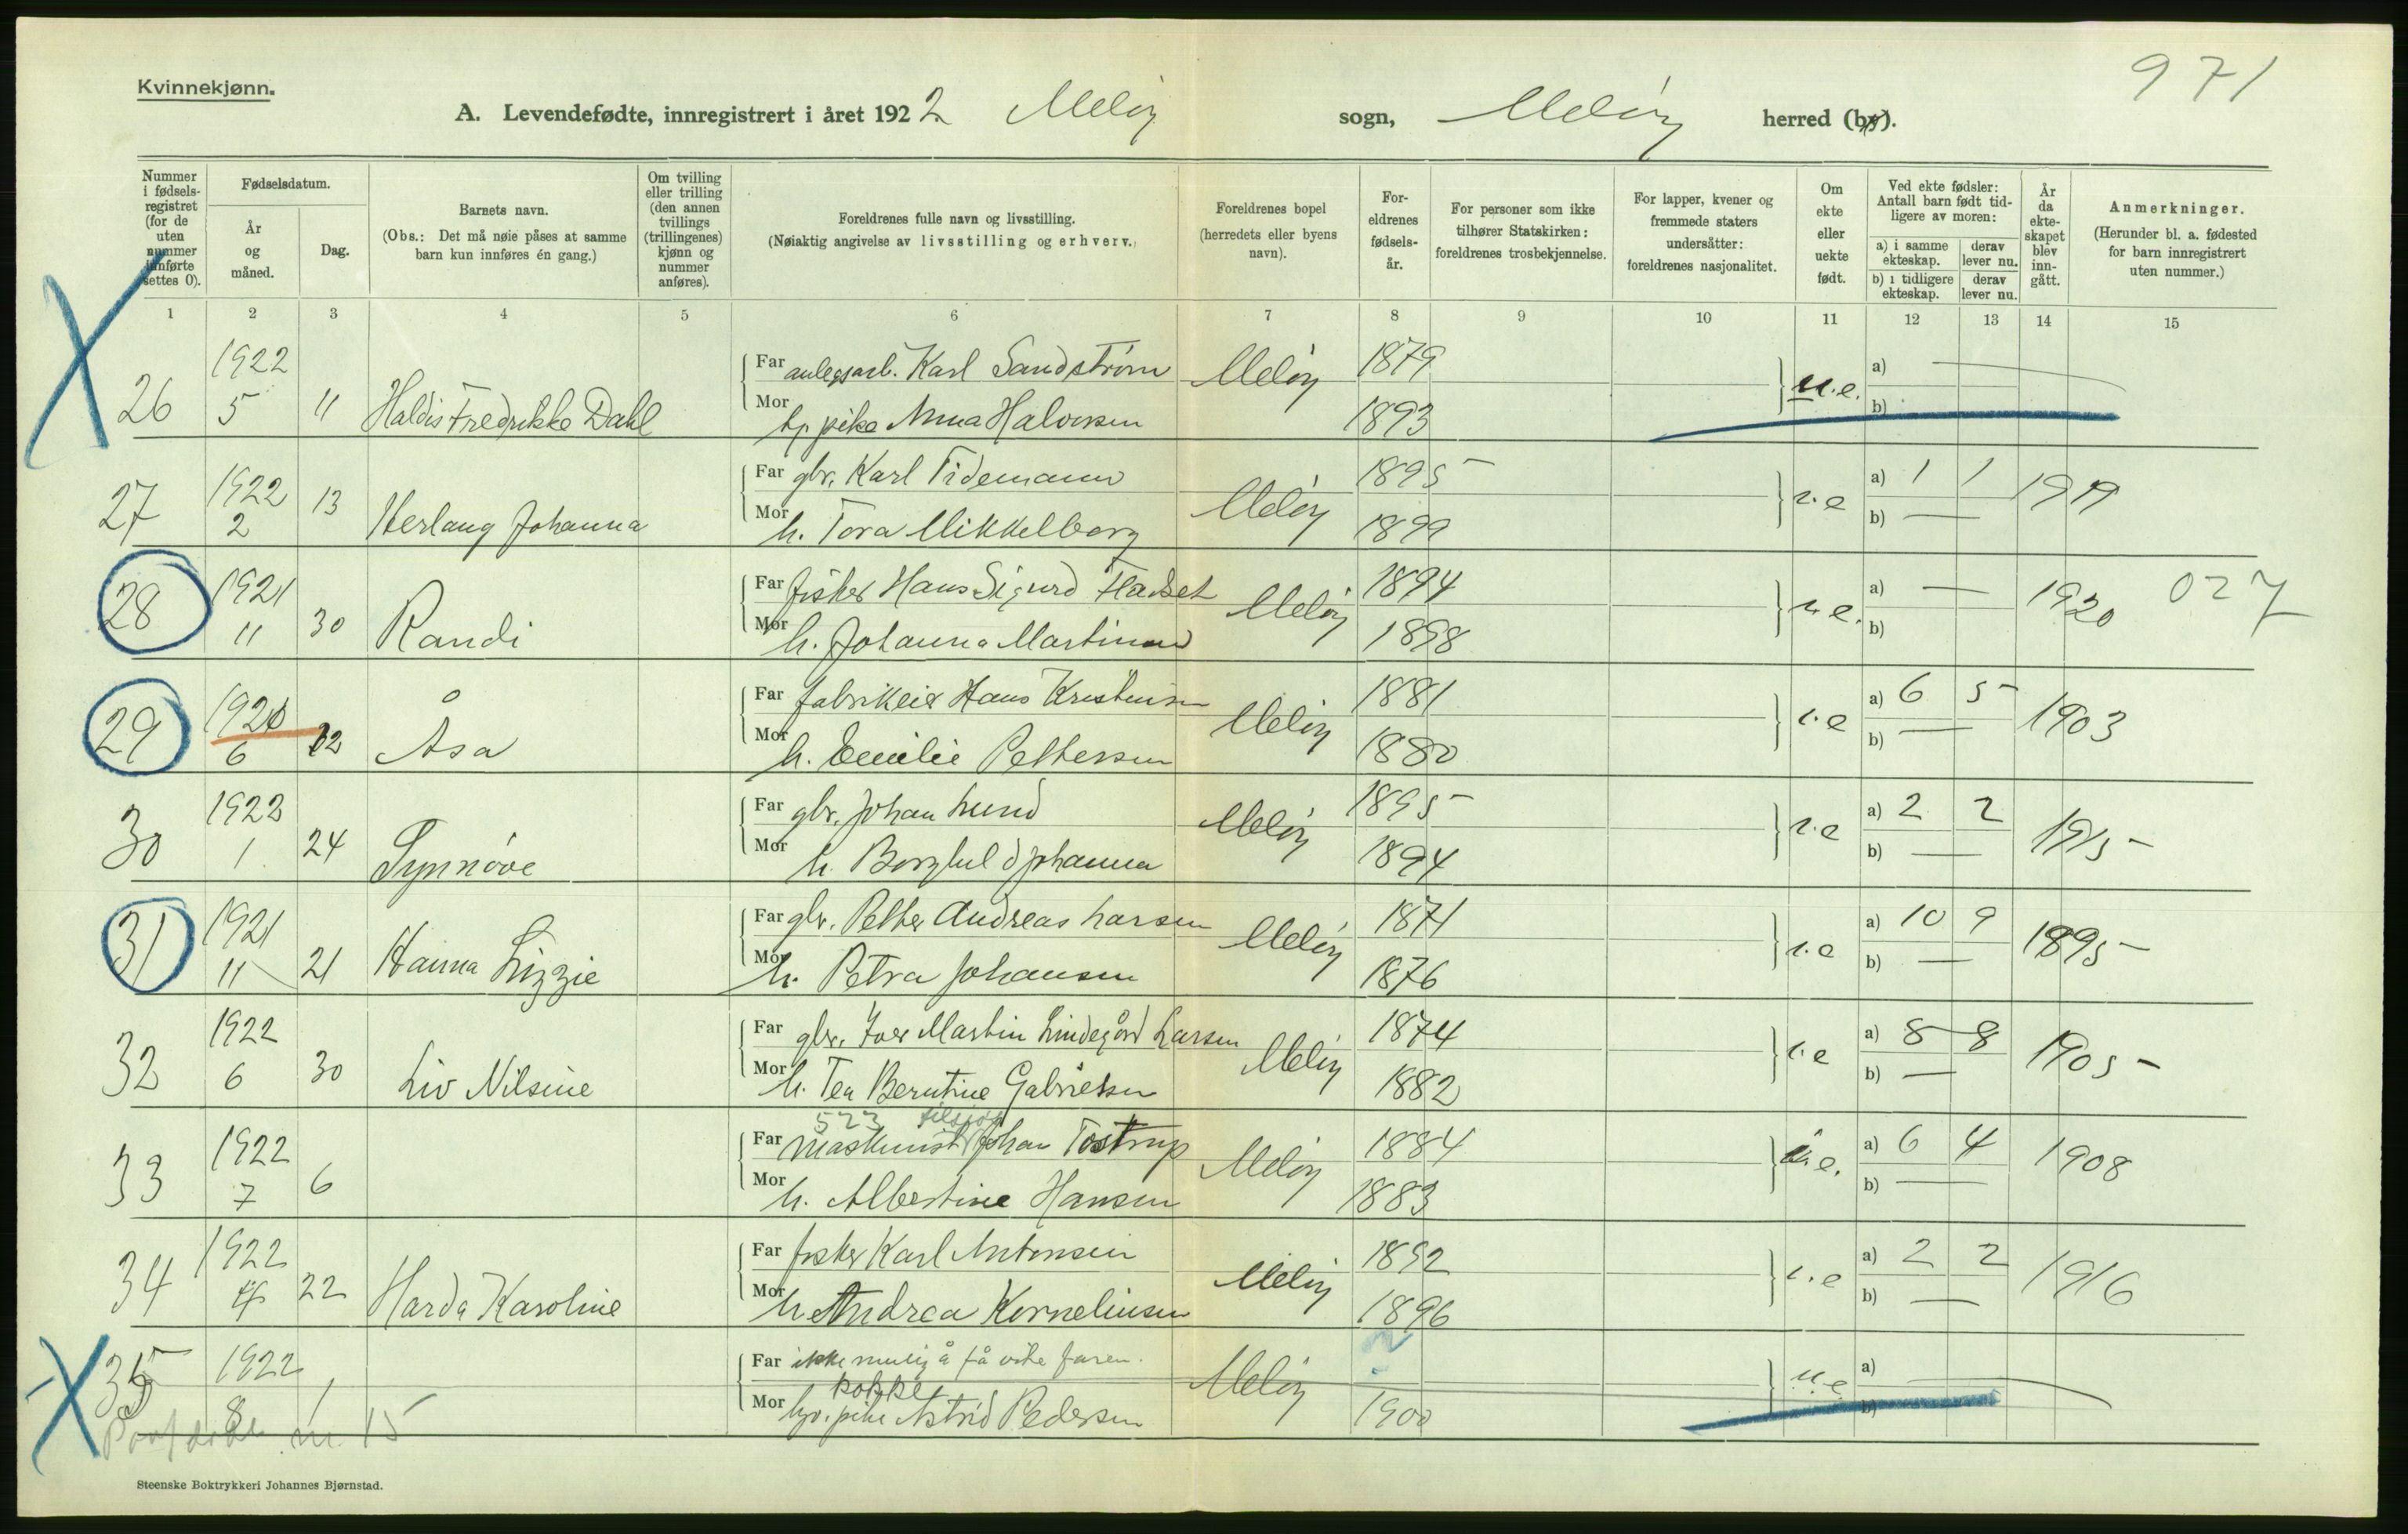 971
Kvinnekjønn.
A. Levendefødte, innregistrert i året 1922 Meløy sogn, Meløy herred (by).
Nummer i fødsels-registret (for de uten nummer innførte settes 0).
Fødselsdatum.
År og måned.
Dag.
Barnets navn.
(Obs.: Det må nøie påses at samme barn kun innføres én gang.)
Om tvilling eller trilling (den annen tvillings (trillingenes) kjønn og nummer anføres).
Foreldrenes fulle navn og livsstilling.
(Nøiaktig angivelse av livsstilling og erhverv.)
Foreldrenes bopel (herredets eller byens navn).
For-eldrenes fødsels-år.
For personer som ikke tilhører Statskirken: foreldrenes trosbekjennelse.
For lapper, kvener og fremmede staters undersåtter: foreldrenes nasjonalitet.
Om ekte eller uekte født.
Ved ekte fødsler: Antall barn født tid-ligere av moren:
a) i samme ekteskap.
derav lever nu.
b) i tidligere ekteskap.
derav lever nu.
År da ekte-skapet blev inn-gått.
Anmerkninger.
(Herunder bl. a. fødested for barn innregistrert uten nummer.)
1 2 3 4 5 6 7 8 9 10 11 12 13 14 15
26 1922 5 11 Haldis Fredrikke Dahl
Far anlegsarb. Karl Sandstrøm Meløy 1879 u.e. a) —
Mor tj. pike Anna Halvorsen 1893 b)
27 1922 2 13 Herlaug Johanna
Far gbr. Karl Tidemann Meløy 1895 e.e a) 1 1 1919
Mor h. Tora Mikkelborg 1899 b) —
28 1921 11 30 Randi
Far fisker Hans Sigurd Meløy 1894 e. a) — 1920 027
Mor h. Johanna Martinsen 1898 b)
29 1920 6 12 Åsa
Far fabrikeier Hans Kristensen Meløy 1881 e a) 6 5 1903
Mor h. Emilie Pettersen 1880 b) —
30 1922 1 24 Synnøve
Far gbr. Johan Lund Meløy 1895 e a) 2 2 1915
Mor h. Borghild Johanna 1894 b) —
31 1921 11 21 Hanna Lizzie
Far gbr. Petter Andreas Larsen Meløy 1871 e a) 10 9 1895
Mor h. Petra Johansen 1876 b) —
32 1922 6 30 Liv Nilsine
Far gbr. Iver Martin Lindegård Larsen Meløy 1874 e a) 8 8 1905
Mor h. Tea Berntine Gabrielsen 1882 b) —
523 tilsjøs
33 1922 7 6
Far maskinist Johan Tostrup Meløy 1884 e. a) 6 4 1908
Mor h. Albertine Hansen 1883 b) —
34 1922 4 22 Harda Karoline
Far fisker Karl Antonsen Meløy 1892 e a) 2 2 1916
Mor h. Andrea Korneliusen 1896 b) —
35 1922 8 1
Far ikke mulig å få vite faren. Meløy u.e a) —
kokke
Mor pike Astrid Pedersen 1900 b)
15
Steenske Boktrykkeri Johannes Bjørnstad.